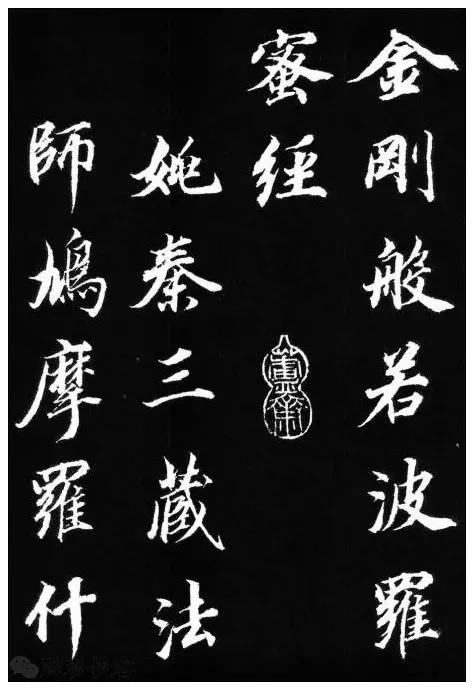 金剛般若波羅
蜜經
姚秦三藏法
師鳩摩羅什